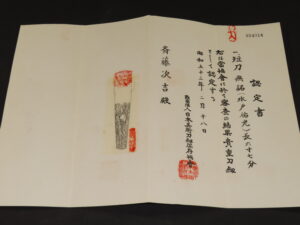 認定書
一、短刀 無銘（水戸祐光）長六寸七分
右は當協會に於て審査の結果貴重刀剣
として認定する
昭和五十三年二月十八日
財団法人日本美術刀剣保存協會
斉藤次吉殿